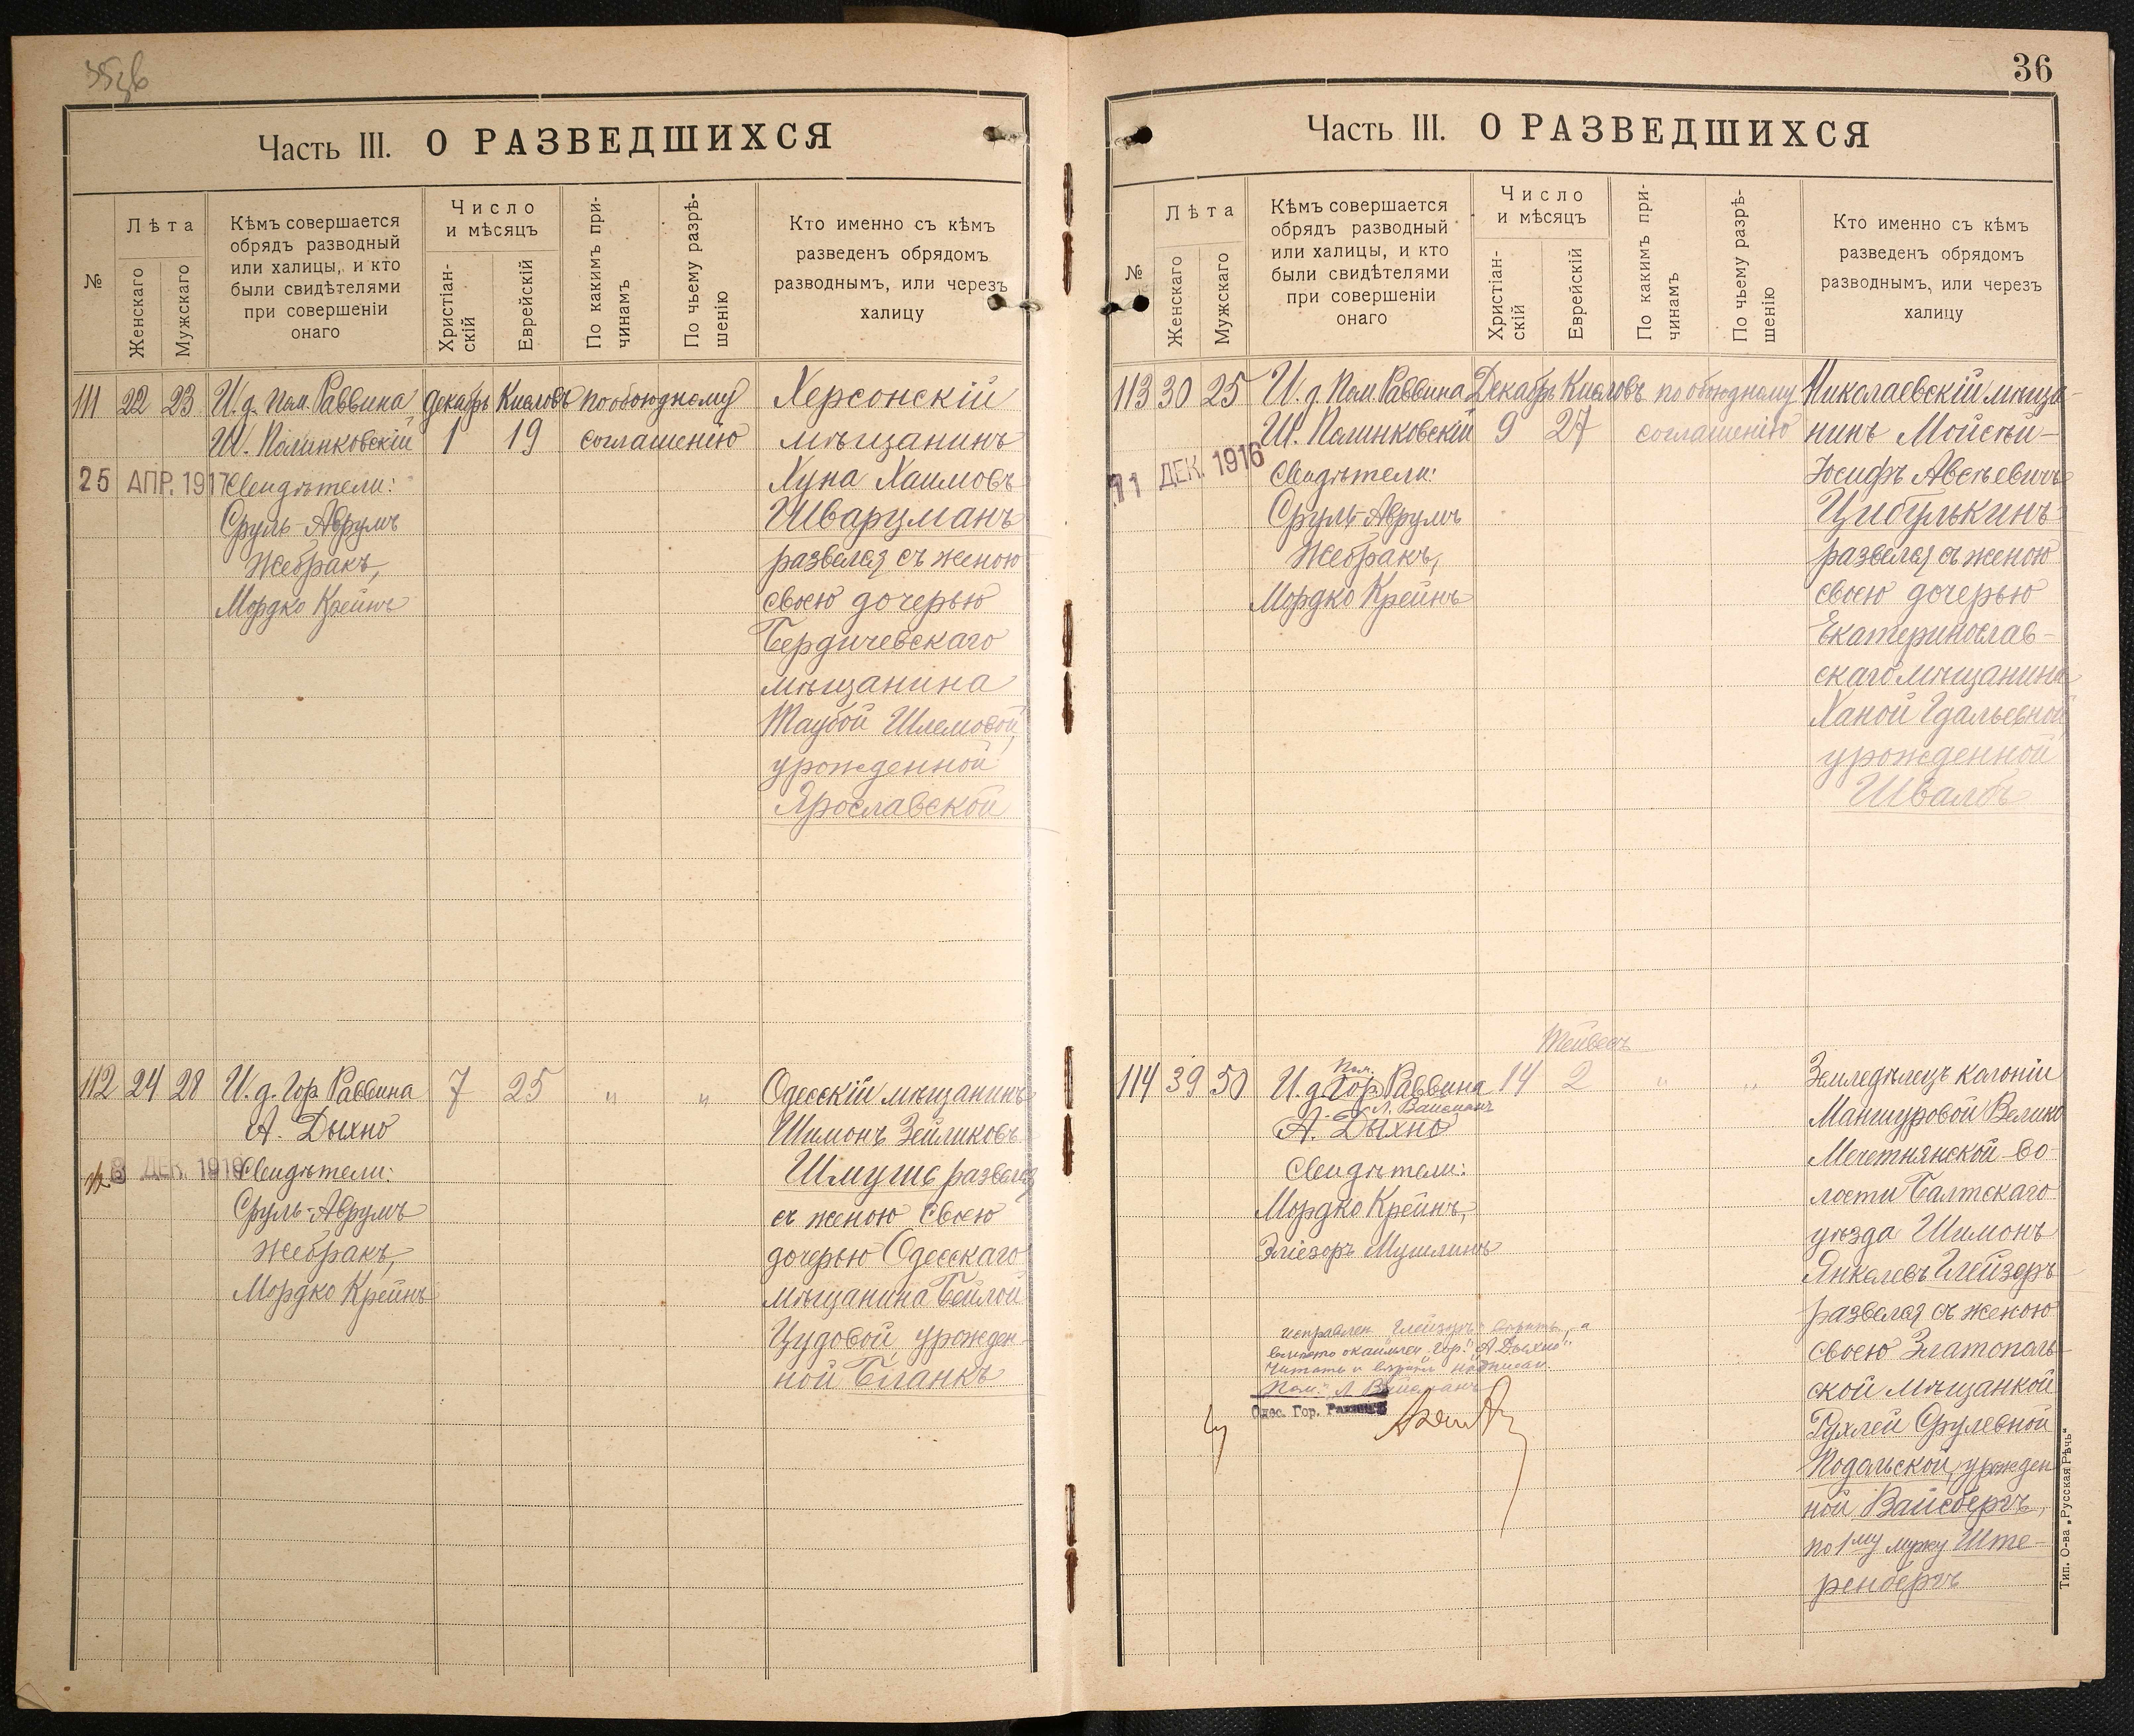 36
Часть III. О РАЗВЕДШИХСЯ
№
Лѣта
Женскаго
Мужскаго
Кѣмъ совершается
обрядъ разводный
или халицы, и кто
были свидѣтелями
при совершеніи
онаго
Число
и мѣсяцъ
Христіан-
скій
Еврейскій
По какимъ при-
чинамъ
По чьему разрѣ-
шенію
Кто именно съ кѣмъ
разведенъ обрядомъ
разводнымъ, или черезъ
халицу
111 22 23 И. д. Пом. Раввина Декабрь Кислевъ по обоюдному Херсонскій
Ш. Полинковскій 1 19 соглашенію мѣщанинъ
25 АПР. 1917 Свидѣтели: Хуна Хаимовъ
Сруль-Аврумъ Шварцманъ
Жебракъ, развелся съ женою
Мордко Крейнъ своею дочерью
Бердичевскаго
мѣщанина
Таубой Шлемовой,
урожденной
Ярославской
112 24 28 И. д. Гор. Раввина 7 25 " " Одесскій мѣщанинъ
А. Дыхно Шимонъ Зейликовъ
8 ДЕК. 1916 Свидѣтели: Шмушъ развелся
Сруль-Аврумъ съ женою своею
Жебракъ, дочерью Одесскаго
Мордко Крейнъ мѣщанина Бейлой
Цудовой, урожден-
ной Бланкъ
Часть III. О РАЗВЕДШИХСЯ
№
Лѣта
Женскаго
Мужскаго
Кѣмъ совершается
обрядъ разводный
или халицы, и кто
были свидѣтелями
при совершеніи
онаго
Число
и мѣсяцъ
Христіан-
скій
Еврейскій
По какимъ при-
чинамъ
По чьему разрѣ-
шенію
Кто именно съ кѣмъ
разведенъ обрядомъ
разводнымъ, или черезъ
халицу
113 30 25 И. д. Пом. Раввина Декабрь Кислевъ по обоюдному Николаевскій мѣща-
Ш. Полинковскій 9 27 соглашенію нинъ Мойсей-
11 ДЕК. 1916 Свидѣтели: Іосифъ Авсѣевичъ
Сруль-Аврумъ Цибулькинъ
Жебракъ, развелся съ женою
Мордко Крейнъ своею дочерью
Екатеринослав-
скаго мѣщанина
Ханой Гдальевной,
урожденной
Швалбъ
Тейвесъ
Пом.
114 39 50 И. д. Гор. Раввина 14 2 " " Земледѣлецъ колоніи
Л. Вайсманъ
А. Дыхно Маншуровой Велико
Свидѣтели: Мечетнянской во-
Мордко Крейнъ, лости Балтскаго
Эліезеръ Мушлинъ уѣзда Шимонъ
Янкелевъ Глейзеръ
развелся съ женою
своею Златополь-
ской мѣщанкой
Рухлей Срулевной
Подольской, урожден
ной Вайсбергъ,
по 1му мужу Ште-
ренбергъ
"Гор." "А Дыхно"
"Пом." Л Вайсманъ
Одес. Гор. Раввинъ
Тип. О-ва „Русская Рѣчь“